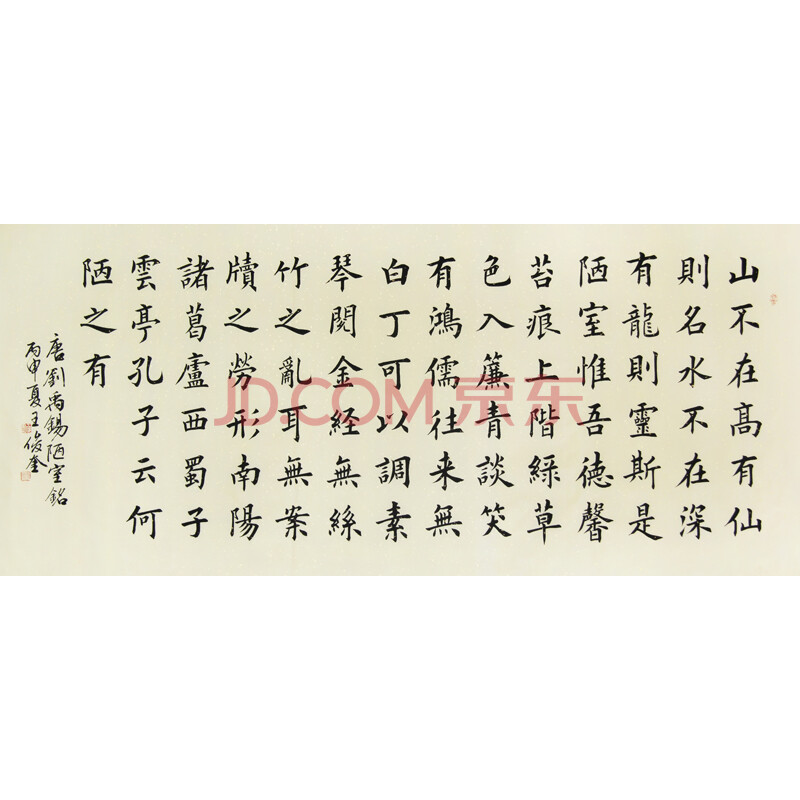 山不在高有仙
則名水不在深
有龍則靈斯是
陋室惟吾德馨
苔痕上階綠草
色入簾青談笑
有鴻儒往来無
白丁可以調素
琴閱金経無絲
竹之亂耳無案
牘之勞形南陽
諸葛廬西蜀子
雲亭孔子云何
陋之有
唐劉禹錫陋室銘
丙申夏王俊奎
JD.COM 京东